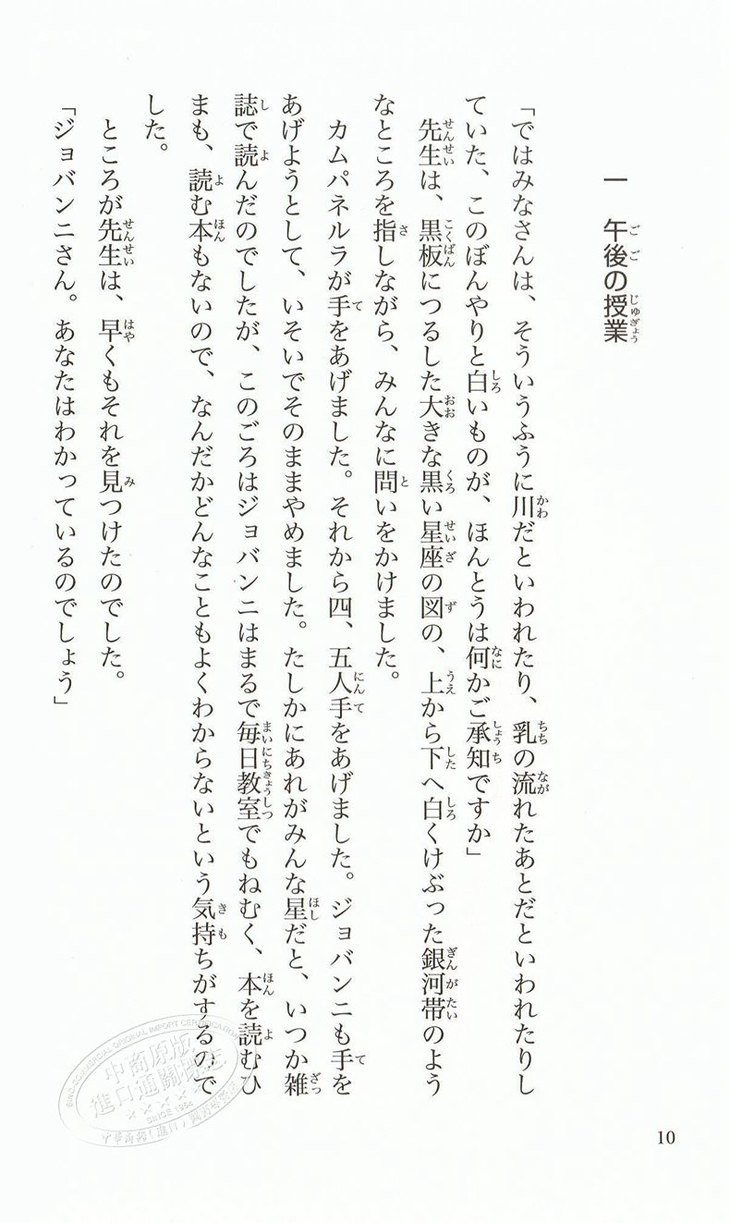 一 午後の授業
「ではみなさんは、そういうふうに川だといわれたり、乳の流れたあとだといわれたりし
ていた、このぼんやりと白いものが、ほんとうは何かご承知ですか」
先生は、黒板につるした大きな黒い星座の図の、上から下へ白くけぶった銀河帯のよう
なところを指しながら、みんなに問いをかけました。
カムパネルラが手をあげました。それから四、五人手をあげました。ジョバンニも手を
あげようとして、いそいでそのままやめました。たしかにあれがみんな星だと、いつか雑
誌で読んだのでしたが、このごろはジョバンニはまるで毎日教室でもねむく、本を読むひ
まも、読む本もないので、なんだかどんなこともよくわからないという気持ちがするので
した。
ところが先生は、早くもそれを見つけたのでした。
「ジョバンニさん。あなたはわかっているのでしょう」
10
中商原版
進口通關制造